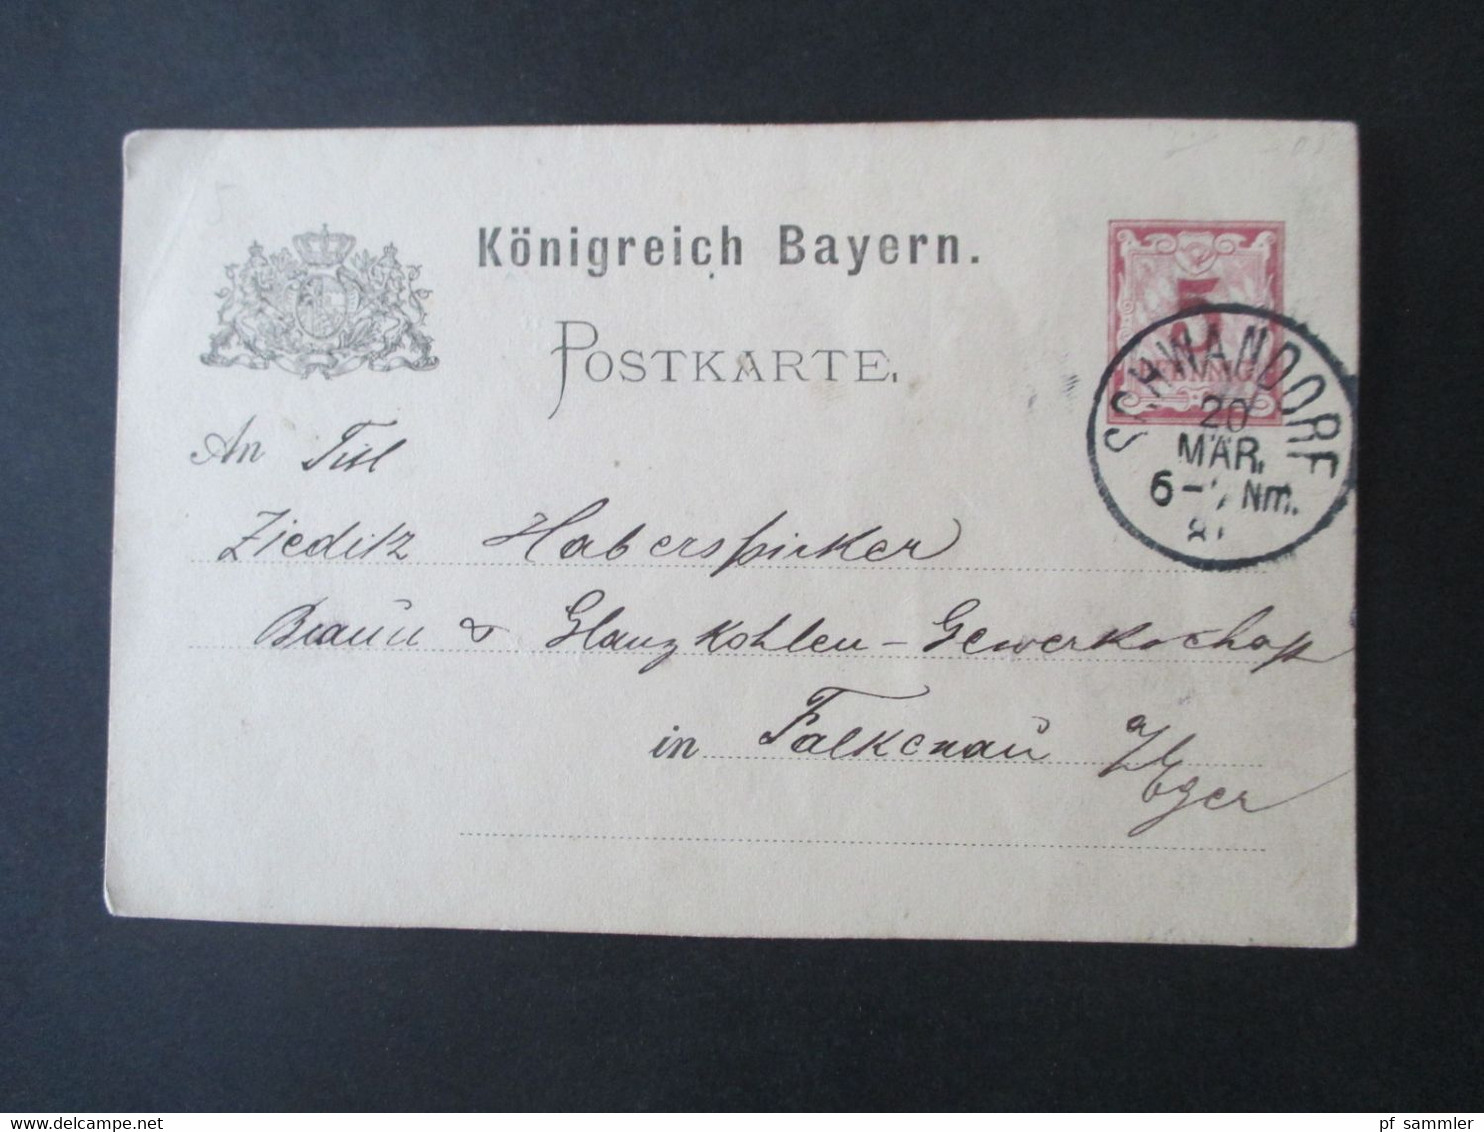 Königreich Bayern.
POSTKARTE.
5
PFENNIG
SCHWANDORF
20
MÄR.
6-7 Nm.
An Titl
Zieditz Haberspirker
Braun & Glanzkohlen-Gewerkschaft
in Falkenau a/Eger
delcampe.net
pf_sammler